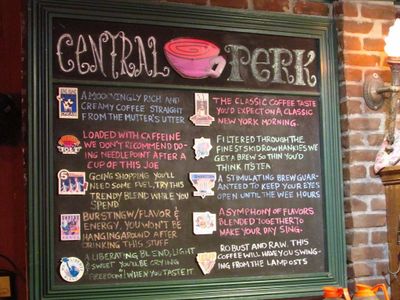 CENTRAL PERK
A MOOOVINGLY RICH AND
CREAMY COFFEE STRAIGHT
FROM THE MUTTER'S UTTER
LOADED WITH CAFFEINE
WE DON'T RECOMMEND DO-
ING NEEDLEPOINT AFTER A
CUP OF THIS JOE
GOING SHOPPING YOU'LL
NEED SOME FUEL, TRY THIS
TRENDY BLEND WHILE YOU
SPEND
BURSTING W/FLAVOR &
ENERGY, YOU WON'T BE
HANGING AROUND AFTER
DRINKING THIS STUFF
A LIBERATING BLEND, LIGHT
& SWEET YOU'LL BE CRYING
FREEDOM! WHEN YOU TASTE IT
THE CLASSIC COFFEE TASTE
YOU'D EXPECT ON A CLASSIC
NEW YORK MORNING.
FILTERED THROUGH THE
FINEST SKIDROW HANKIES WE
GET A BREW SO THIN YOU'D
THINK IT'S TEA
A STIMULATING BREW GUAR-
ANTEED TO KEEP YOUR EYES
OPEN UNTIL THE WEE HOURS
A SYMPHONY OF FLAVORS
BLENDED TOGETHER TO
MAKE YOUR DAY SING.
ROBUST AND RAW THIS
COFFEE WILL HAVE YOU SWING-
ING FROM THE LAMPOSTS